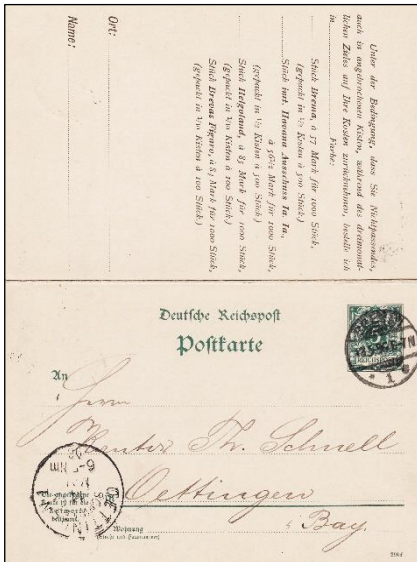 Unter der Bedingung, dass Sie Nichtpassendes,
auch in angebrochenen Kisten, während des dreimonat-
lichen Zieles auf Ihre Kosten zurücknehmen, bestelle ich
in Farbe:
Stück Brema, à 57 Mark für 1000 Stück,
(gepackt in 1/2 Kisten à 500 Stück)
Stück imt. Havana Ausschuss Ia. Ia.,
à 56½ Mark für 1000 Stück,
(gepackt in 1/2 Kisten à 500 Stück)
Stück Helgoland, à 83 Mark für 1000 Stück,
(gepackt in 1/10 Kisten à 100 Stück)
Stück Brevas Figuro, à 84 Mark für 1000 Stück,
(gepackt in 1/10 Kisten à 100 Stück)
Ort:
Name:
Deutsche Reichspost
Postkarte
An
Herrn
Kantor Th. Schnell
Oettingen
Bay.
Wohnung
(Straße und Hausnummer)
REICHSPOST
5
1
OETTINGEN